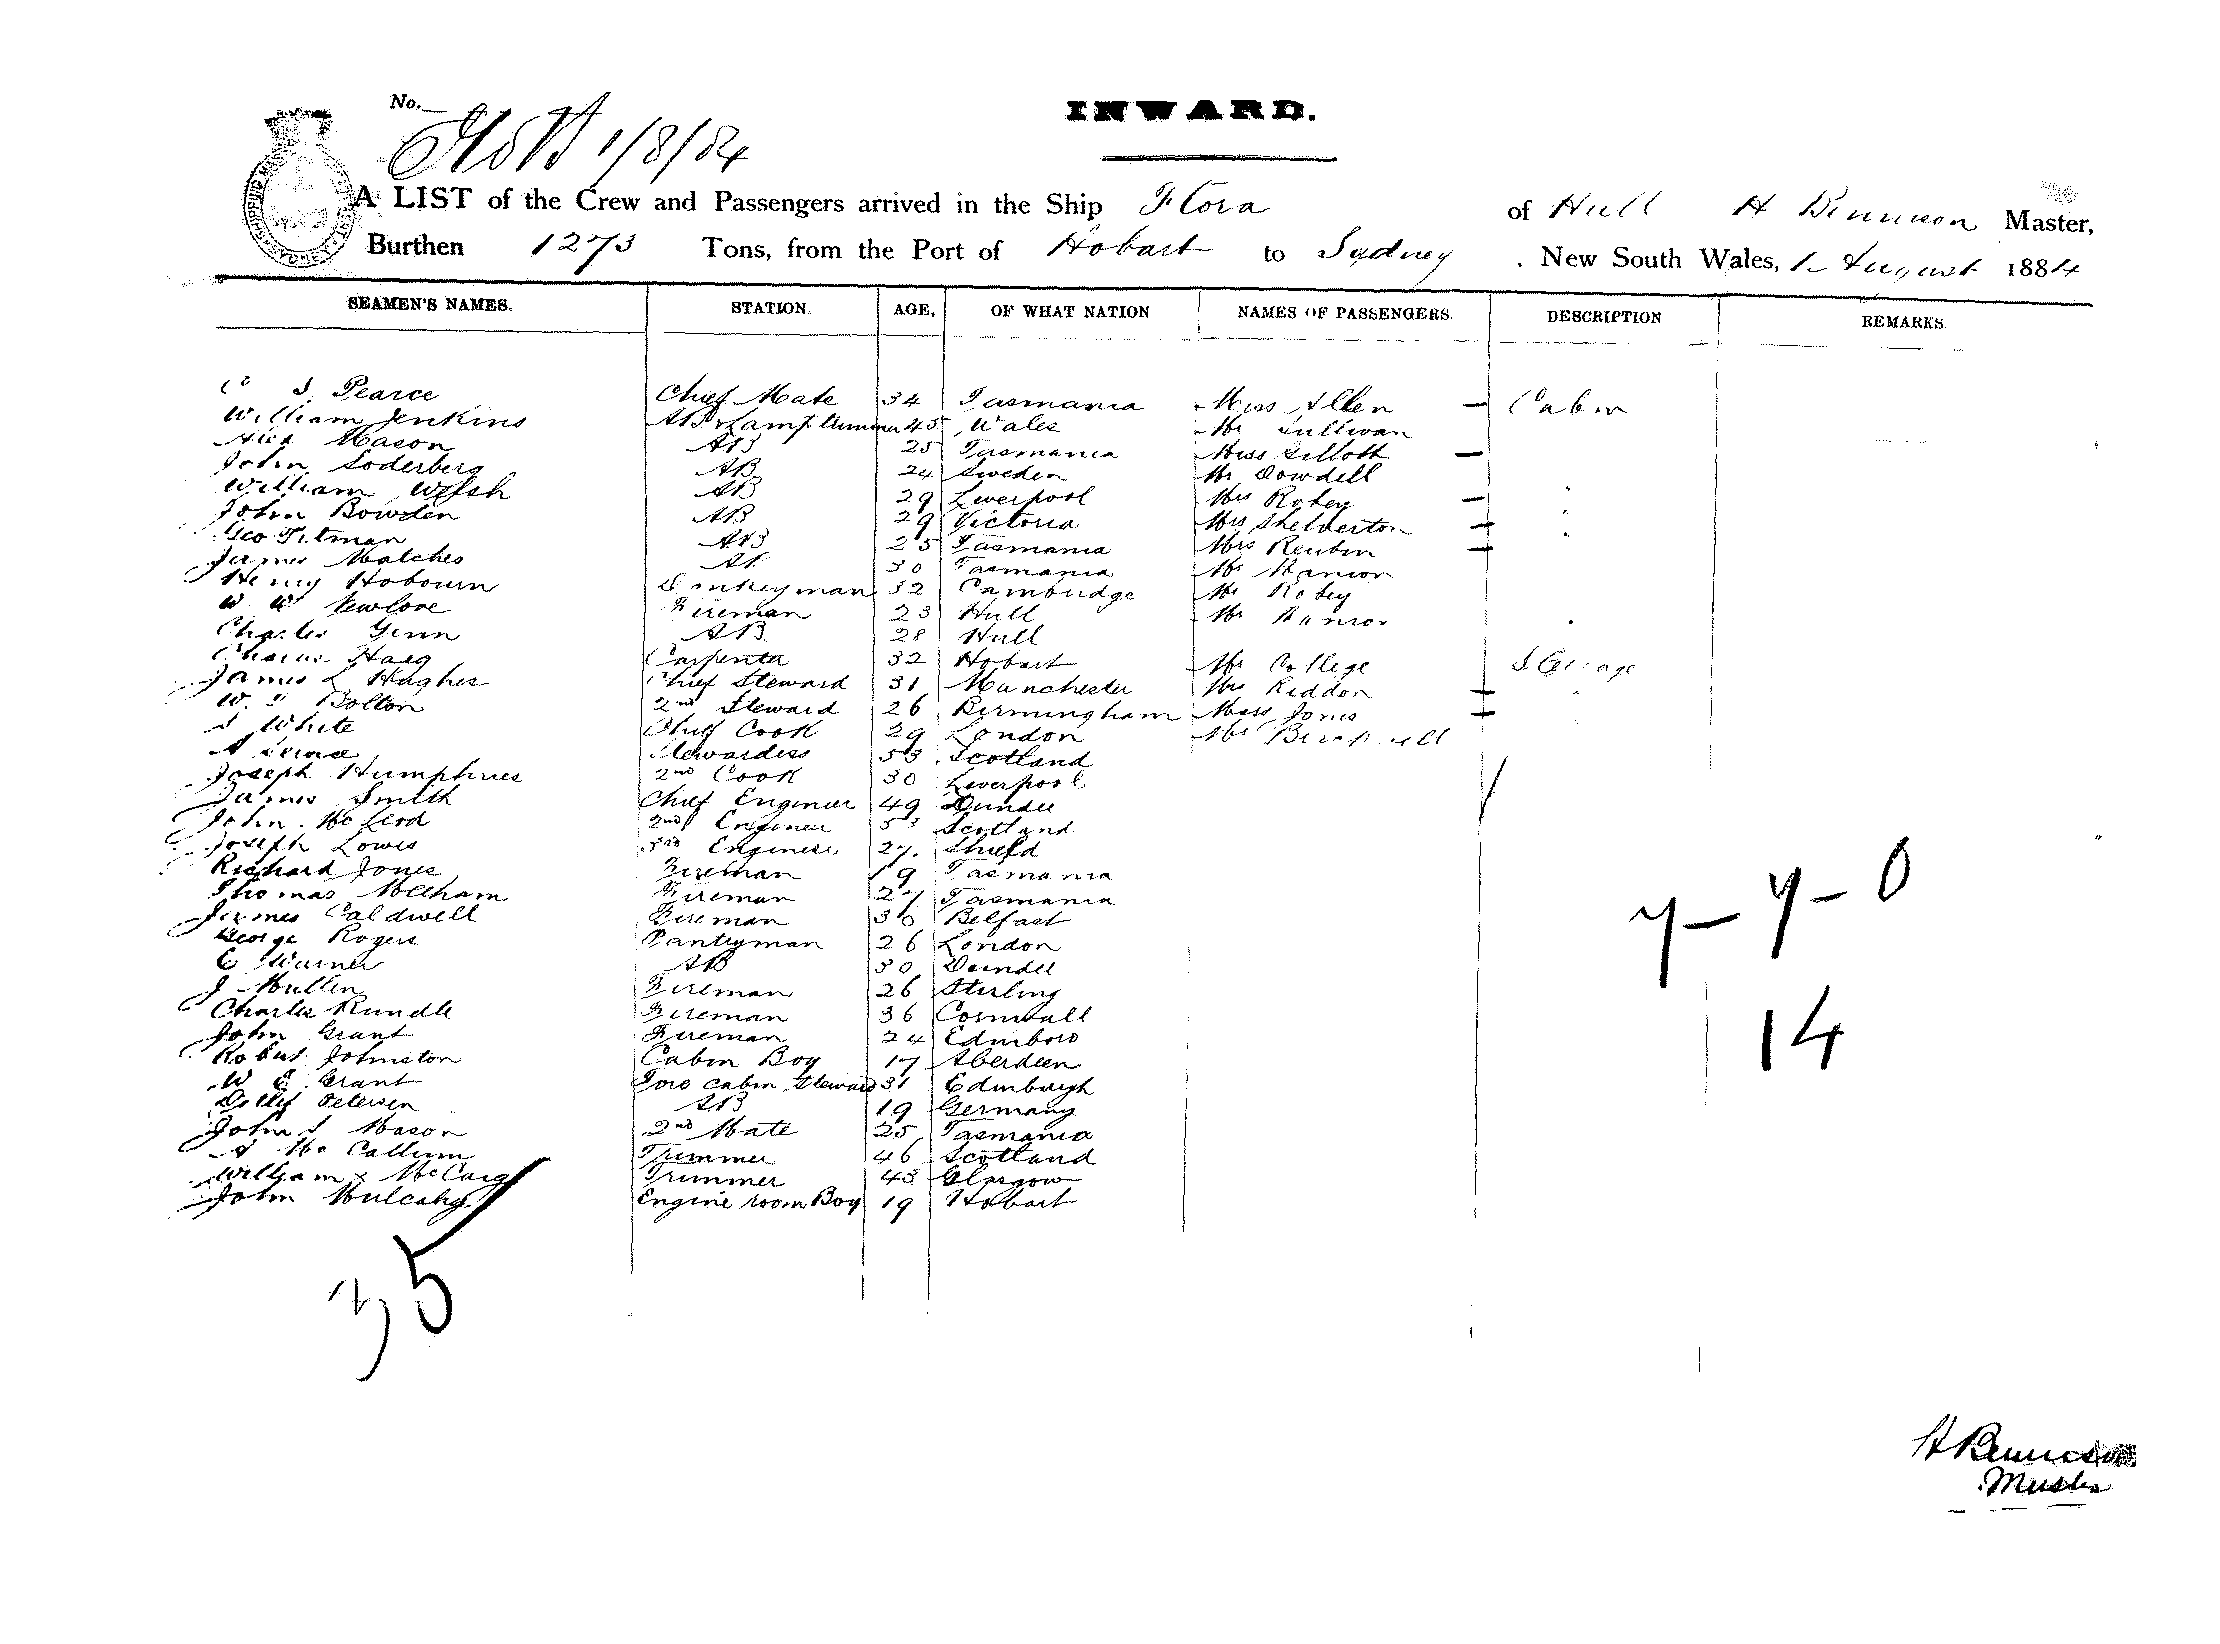 No.
1/8/84
INWARD.
A LIST of the Crew and Passengers arrived in the Ship Flora of Hull H Bennison Master,
Burthen 1273 Tons, from the Port of Hobart to Sydney . New South Wales, 1 August 1884
SEAMEN'S NAMES. STATION. AGE. OF WHAT NATION NAMES OF PASSENGERS. DESCRIPTION REMARKS.
Pearce Chief Mate 34 Tasmania Miss Allen — Cabin
William Jenkins AB & Lamp trimmer 45 Wales Mr Sullivan
Alex Mason AB 25 Tasmania Miss —
John Soderberg AB 24 Sweden Mr Dowdell
William Welsh AB 29 Liverpool Mrs Robey —
John Bowden AB 29 Victoria Mrs Shelverton —
Geo Pitman AB 25 Tasmania Mrs Reuben —
James Matches AB 30 Tasmania Mr
Henry Hobourn Donkeyman 32 Cambridge Mr Robey
W W Newlove Fireman 23 Hull Mr
Charles Genn AB 28 Hull
Charles Haeg Carpenter 32 Hobart Mr College Steerage
James L Hughes Chief Steward 31 Manchester Mrs Riddon —
W. Bolton 2nd Steward 26 Birmingham Miss Jones —
White Chief Cook 29 London Mr
A Stewardess 53 Scotland
Joseph Humphries 2nd Cook 30 Liverpool
James Smith Chief Engineer 49 Dundee
John McLeod 2nd Engineer Scotland
Joseph Lowis 3rd Engineer 27 Shield
Richard Jones Fireman 19 Tasmania
Thomas Meeham Fireman 27 Tasmania
James Caldwell Fireman 36 Belfast
George Rogers Pantryman 26 London
E Warner AB 30 Dundee
J Mullen Fireman 26 Sterling
Charles Rundle Fireman 36 Cornwall
John Grant Fireman 24 Edinboro
Robert Johnston Cabin Boy 17 Aberdeen
W E Grant Fore cabin Steward 31 Edinburgh
Detlef Petersen AB 19 Germany
John S Mason 2nd Mate 25 Tasmania
A McCallum Trimmer 46 Scotland
William McCaig Trimmer 43 Glasgow
John Mulcahy Engine room Boy 19 Hobart
35
7 – 7 – 0
14
H Bennison
Master